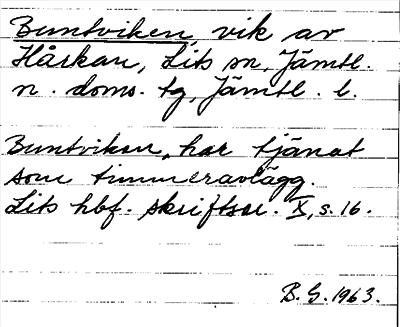 Buntviken, vik av
Hårkan, Lits sn, Jämtl.
n. doms. tg, Jämtl. l.
Buntviken, har tjänat
som timmeravlägg.
Lits hbf. skriftser. X, s. 16.
B. G. 1963.